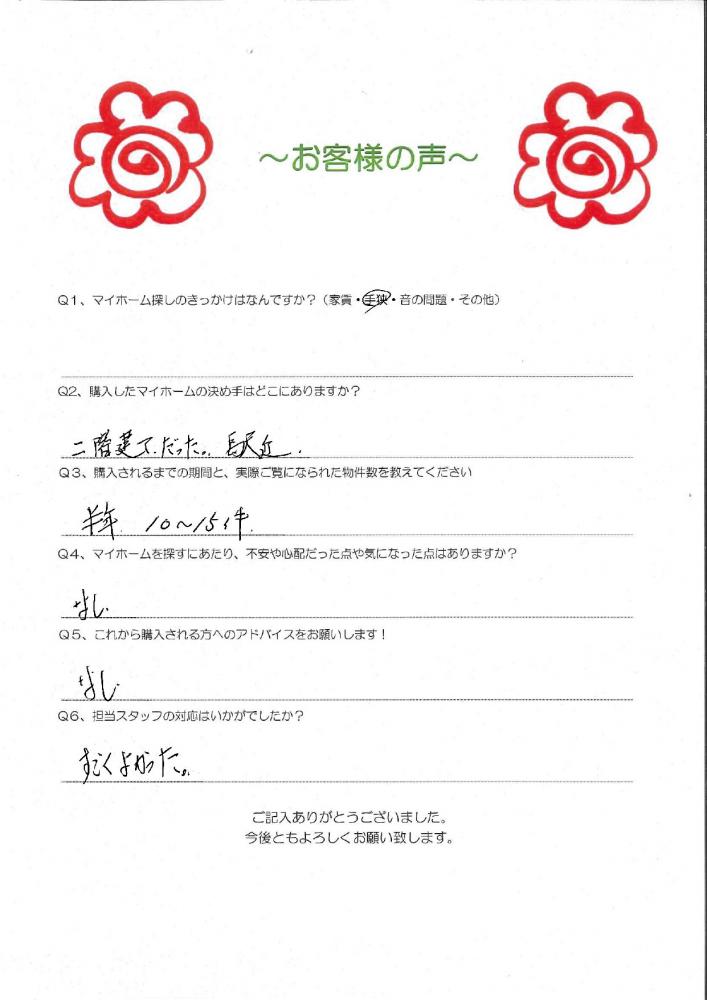 ～お客様の声～
Q1、マイホーム探しのきっかけはなんですか？（家賃・手狭・音の問題・その他）
Q2、購入したマイホームの決め手はどこにありますか？
二階建てだった。駅近.
Q3、購入されるまでの期間と、実際ご覧になられた物件数を教えてください
半年 10～15件.
Q4、マイホームを探すにあたり、不安や心配だった点や気になった点はありますか？
なし.
Q5、これから購入される方へのアドバイスをお願いします！
なし.
Q6、担当スタッフの対応はいかがでしたか？
すごくよかった。
ご記入ありがとうございました。
今後ともよろしくお願い致します。